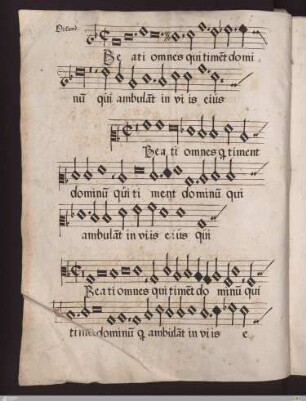 Beati omnes qui timẽt domi
nũ qui ambulãt in viis eius
Beati omnes q timent
dominũ qui timent dominũ qui
ambulãt in viis eius qui
Beati omnes qui timẽt dominũ qui
dominũ q ambulãt in viis e